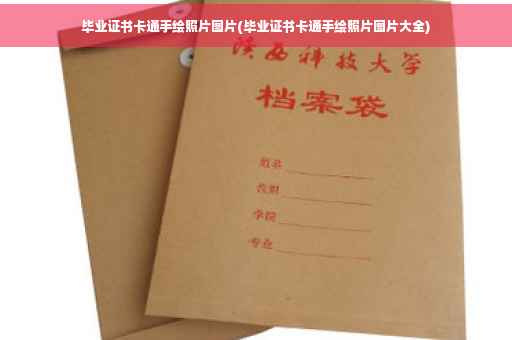 毕业证书卡通手绘照片图片(毕业证书卡通手绘照片图片大全)
陕西科技大学
档案袋
姓名
学院
专业